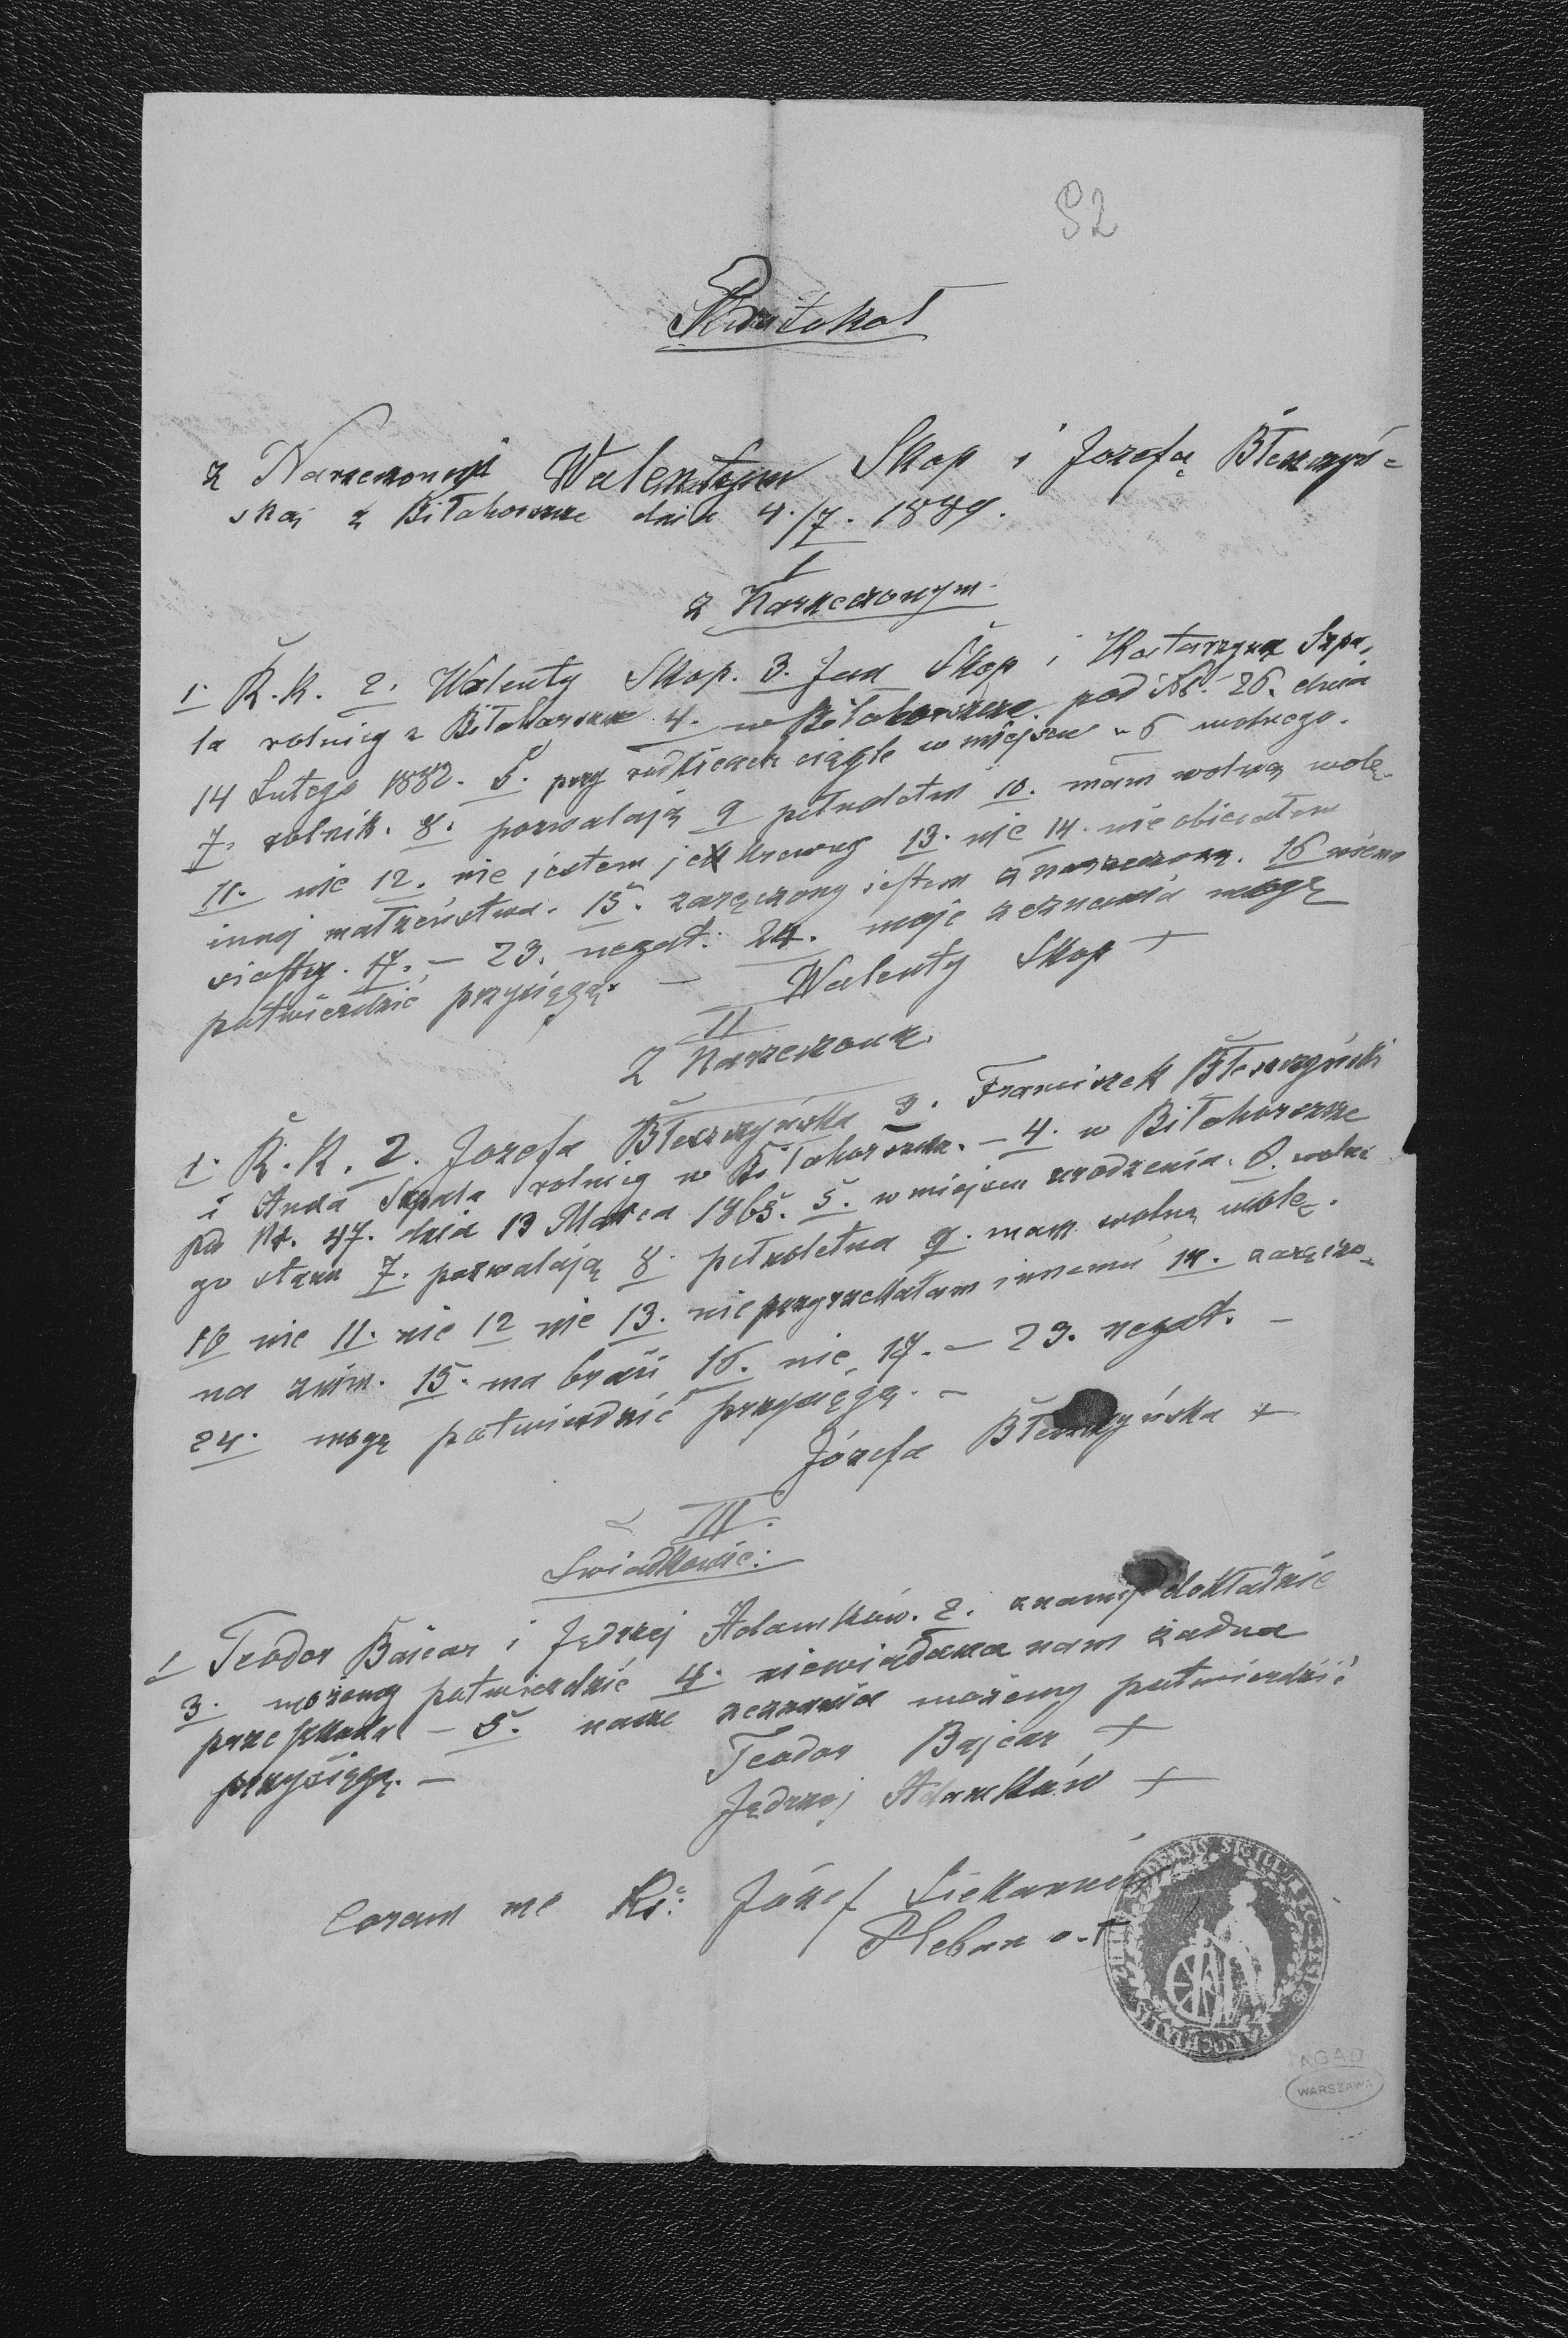 52
Protokoł
z Narzeczonymi Walentym Skop i Jozefą Błeszczyń=
ską z Biłohorszcze dnia 4./7. 1889.
I
z Narzeczonym
1. R. K. 2. Walenty Skop. 3. Jan Skop i Katarzyna Szpa,
la rolnicy z Biłohorszcze 4. w Biłohorszcze pod Nr. 26. dnia
14 Lutego 1882. 5. przy rodzicach ciągle w miejscu 6 wolnego.
7. rolnik. 8. pozwalają 9 pełnoletni 10. mam wolną wolę.
11. nie 12. nie jestem jej krewny 13. nie 14. nie obiecałem
innej małżeństwa. 15. zaręczony jestem z narzeczoną. 16
siostry. 17. – 23. negat: 24. moje zeznania mogę
potwierdzić przysięgą. – Walenty Skop +
II
Z Narzeczoną.
1. R. K. 2. Jozefa Błeszczyńska 3. Franciszek Błeszczyński
i Anna Szpala rolnicy w Biłohorszcze. – 4. w Biłohorszcze
pod Nr. 47. dnia 13 Marca 1865. 5. w miejscu urodzenia. 6. wolne
go stanu 7. pozwalają 8. pełnoletna 9. mam wolną wolę.
10 nie 11. nie 12 nie 13. nie przyrzekałam innemu 14. zaręczo-
na z nim. 15. ma braci 16. nie 17. – 23. negat. –
24. mogę potwierdzić przysięgą. –
Józefa Błeszczyńska +
III.
Świadkowie:
1 Teodor Bajcar i Jędrzej Adamków. 2. znamy dokładnie
3. możemy potwierdzić 4. niewiadoma nam żadna
przeszkoda – 5. nasze zeznania możemy potwierdzić
przysięgą. – Teodor Bajcar +
Jędrzej Adamków +
Coram me Ks: Józef
Pleban
AGAD
WARSZAWA